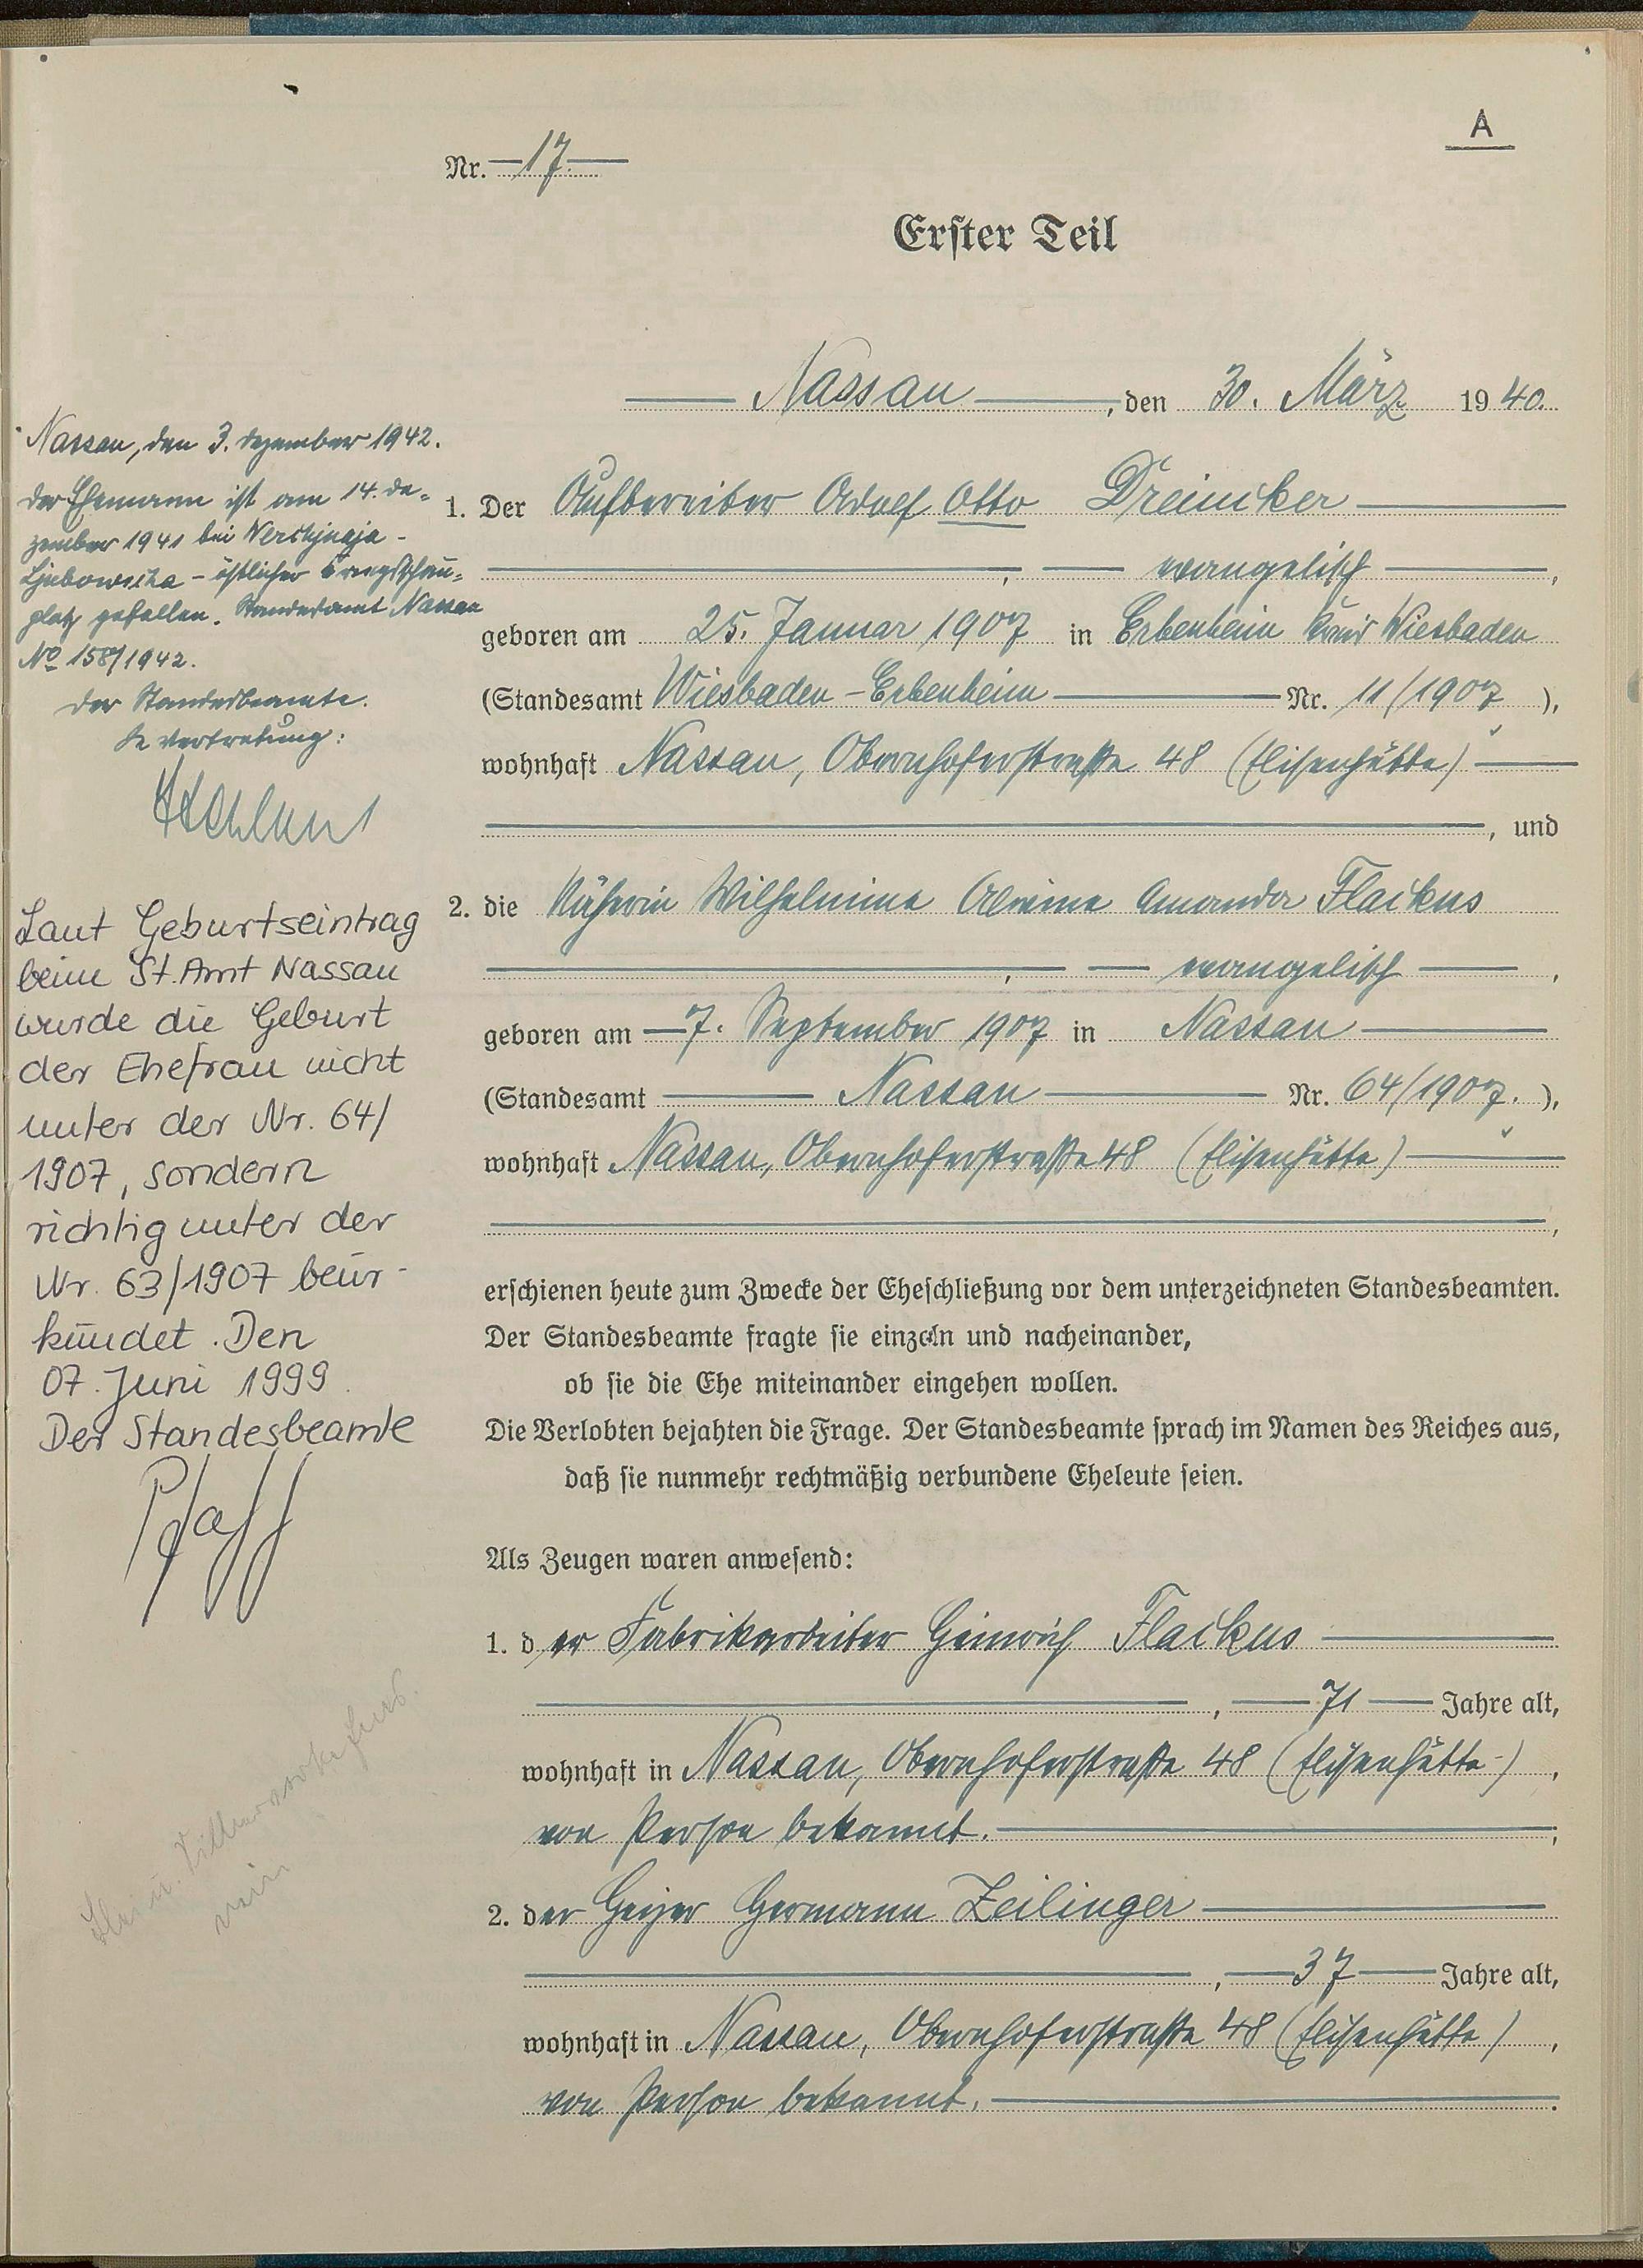 A
Nr. 17
Erster Teil
Nassau, den 30. März 1940.
1. Der Aufbereiter Adolf Otto Dreincker
, evangelisch,
geboren am 25. Januar 1907 in Erbenheim Kreis Wiesbaden
(Standesamt Wiesbaden-Erbenheim Nr. 11/1907),
wohnhaft Nassau, Obernhoferstraße 48 (Elisenhütte)
, und
2. die Näherin Wilhelmine Alwine Amanda Flackus
, evangelisch,
geboren am 7. September 1907 in Nassau
(Standesamt Nassau Nr. 64/1907.),
wohnhaft Nassau, Obernhoferstraße 48 (Elisenhütte)
,
erschienen heute zum Zwecke der Eheschließung vor dem unterzeichneten Standesbeamten.
Der Standesbeamte fragte sie einzeln und nacheinander,
ob sie die Ehe miteinander eingehen wollen.
Die Verlobten bejahten die Frage. Der Standesbeamte sprach im Namen des Reiches aus,
daß sie nunmehr rechtmäßig verbundene Eheleute seien.
Als Zeugen waren anwesend:
1. der Fabrikarbeiter Heinrich Flackus
, 71 Jahre alt,
wohnhaft in Nassau, Obernhoferstraße 48 (Elisenhütte),
von Person bekannt.
2. der Heizer Hermann Zeilinger
, 37 Jahre alt,
wohnhaft in Nassau, Obernhoferstraße 48 (Elisenhütte),
von Person bekannt.
Nassau, den 3. Dezember 1942.
Der Ehemann ist am 14. De-
zember 1941 bei
- östlicher Kriegsschau-
platz gefallen. Standesamt Nassau
No 158/1942.
Der Standesbeamte.
In Vertretung:
Laut Geburtseintrag
beim St.Amt Nassau
wurde die Geburt
der Ehefrau nicht
unter der Nr. 64/
1907, sondern
richtig unter der
Nr. 63/1907 beur-
kundet. Den
07. Juni 1999
Der Standesbeamte
Pfaff